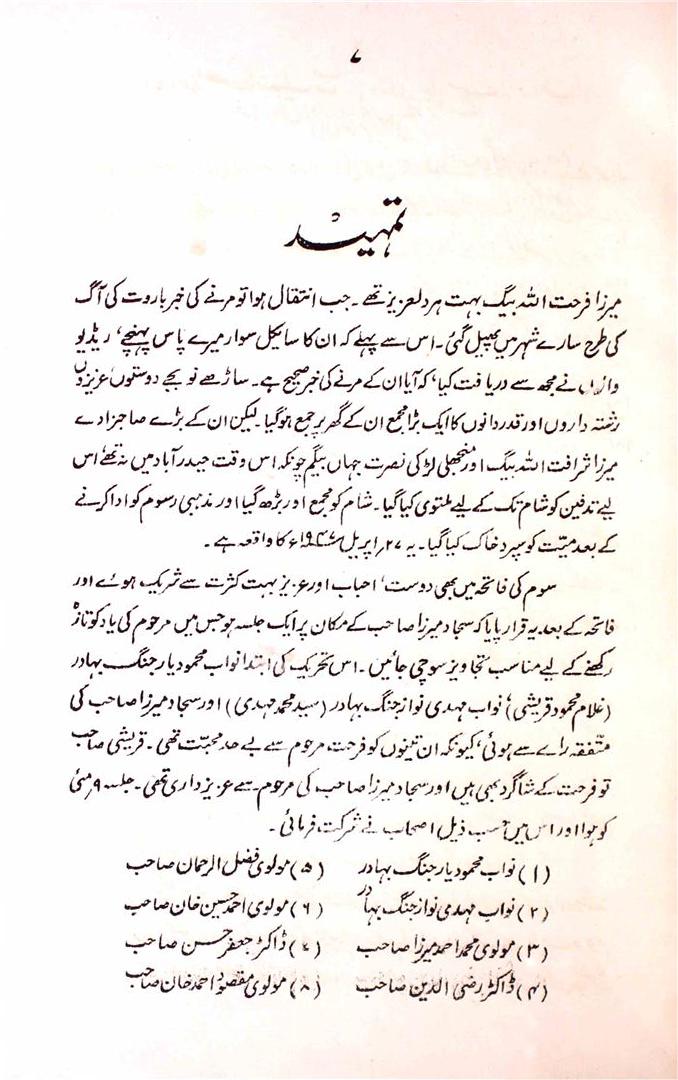 ۷
تمہید
میرزا فرحت اللہ بیگ بہت ہردلعزیز تھے۔ جب انتقال ہوا تو مرنے کی خبر باروت کی آگ
کی طرح سارے شہر میں پھیل گئی۔ اس سے پہلے کہ ان کا سائیکل سوار میرے پاس پہنچے، ریڈیو
والوں نے مجھ سے دریافت کیا، کہ آیا ان کے مرنے کی خبر صحیح ہے۔ ساڑھے نو بجے دوستوں، عزیزوں
رشتہ داروں اور قدر دانوں کا ایک بڑا مجمع ان کے گھر پر جمع ہوگیا۔ لیکن ان کے بڑے صاحبزادے
میرزا شرافت اللہ بیگ اور منجھلی لڑکی نصرت جہاں بیگم چونکہ اس وقت حیدرآباد میں نہ تھے اس
لیے تدفین کو شام تک کے لیے ملتوی کیا گیا۔ شام کو مجمع اور بڑھ گیا اور مذہبی رسوم کو ادا کرنے
کے بعد میّت کو سپرد خاک کیا گیا۔ یہ ۲۷؍ اپریل ۱۹۴۷ء کا واقعہ ہے۔
سوم کی فاتحہ میں بھی دوست، احباب اور عزیز بہت کثرت سے شریک ہوئے اور
فاتحہ کے بعد یہ قرار پایا کہ سجاد میرزا صاحب کے مکان پر ایک جلسہ ہو جس میں مرحوم کی یاد کو تازہ
رکھنے کے لیے مناسب تجاویز سوچی جائیں۔ اس تحریک کی ابتدا نواب محمود یار جنگ بہادر
(غلام محمود قریشی)، نواب مہدی نواز جنگ بہادر (سید محمد مہدی) اور سجاد میرزا صاحب کی
متفقہ رائے سے ہوئی، کیونکہ ان تینوں کو فرحت مرحوم سے بے حد محبت تھی۔ قریشی صاحب
تو فرحت کے شاگرد بھی ہیں اور سجاد میرزا صاحب کی مرحوم سے عزیز داری تھی۔ جلسہ ۹؍ مئی
کو ہوا اور اس میں حسب ذیل اصحاب نے شرکت فرمائی۔
(۱) نواب محمود یار جنگ بہادر (۵) مولوی فضل الرحمان صاحب
(۲) نواب مہدی نواز جنگ بہادر (۶) مولوی احمد حسین خان صاحب
(۳) مولوی محمد احمد میرزا صاحب (۷) ڈاکٹر جعفر حسن صاحب
(۴) ڈاکٹر رضی الدین صاحب (۸) مولوی مقصود احمد خان صاحب